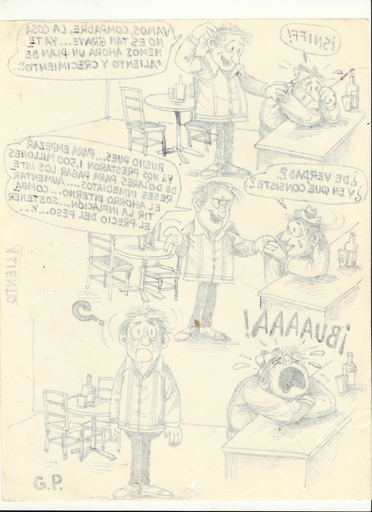 ¡SNIFF!
VAMOS, COMPADRE, LA COSA
NO ES TAN GRAVE... YA TE
NEMOS AHORA UN PLAN DE
"ALIENTO Y CRECIMIENTO"...
¿DE VERDAD?..
¿Y EN QUE CONSISTE..
BUENO PUES... PARA EMPEZAR
YA NOS PRESTARON 1,500 MILLONES
DE DOLARES PARA PAGAR LOS INTE
RESES INMEDIATOS... AUMENTAR
EL AHORRO INTERNO... COMBA
TIR LA INFLACIÓN... SOSTENER
EL PRECIO DEL PESO... Y...
ALIENTO
¡BUAAAA!
?
G.P.